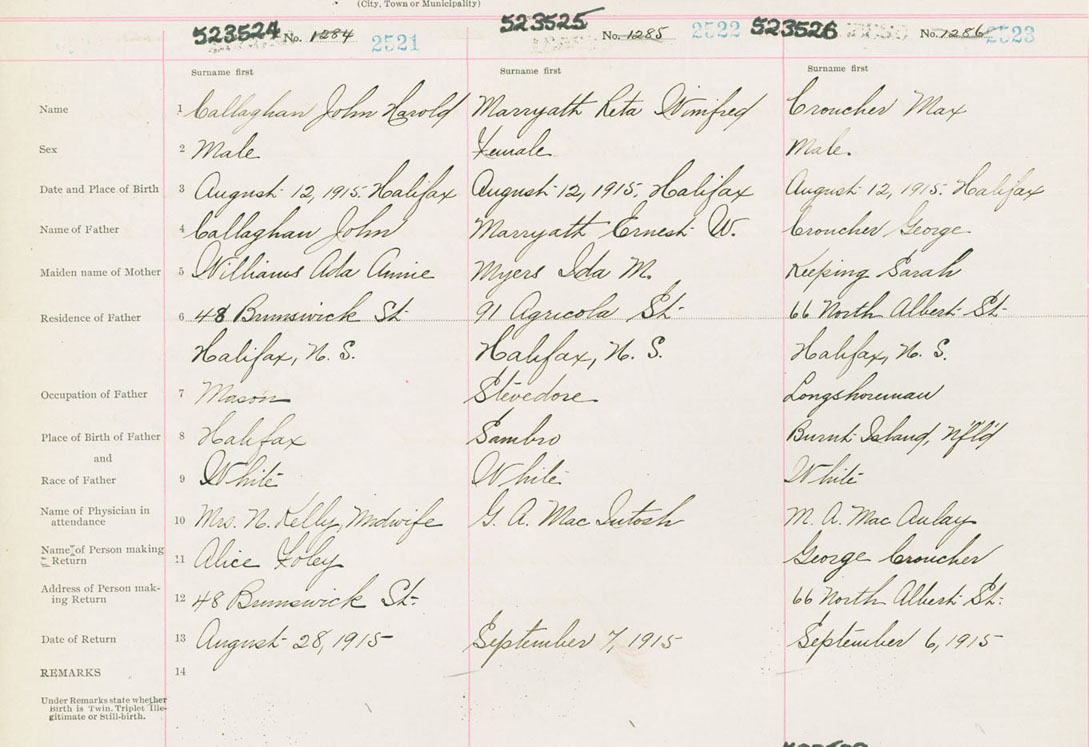 (City, Town or Municipality)
523524 No. 1284 2521 523525 No. 1285 2522 523526 No. 1286 2523
Surname first Surname first Surname first
Name 1 Callaghan John Harold Marryath Reta Winifred Croucher Max
Sex 2 Male Female Male.
Date and Place of Birth 3 August 12, 1915. Halifax August 12, 1915. Halifax August 12, 1915. Halifax
Name of Father 4 Callaghan John Marryath Ernest W. Croucher George
Maiden name of Mother 5 Williams Ada Annie Myers Ida M. Keeping Sarah
Residence of Father 6 48 Brunswick St. 91 Agricola St. 66 North Albert St.
Halifax, N. S. Halifax, N. S. Halifax, N. S.
Occupation of Father 7 Mason Stevedore Longshoreman
Place of Birth of Father 8 Halifax Sambro Burnt Island, Nfld
and
Race of Father 9 White White White
Name of Physician in
attendance 10 Mrs. N. Kelly, Midwife G. A. Mac Intosh M. A. Mac Aulay
Name of Person making
Return 11 Alice Foley George Croucher
Address of Person mak-
ing Return 12 48 Brunswick St. 66 North Albert St.
Date of Return 13 August 28, 1915 September 7, 1915 September 6, 1915
REMARKS 14
Under Remarks state whether
Birth is Twin, Triplet Ille-
gitimate or Still-birth.